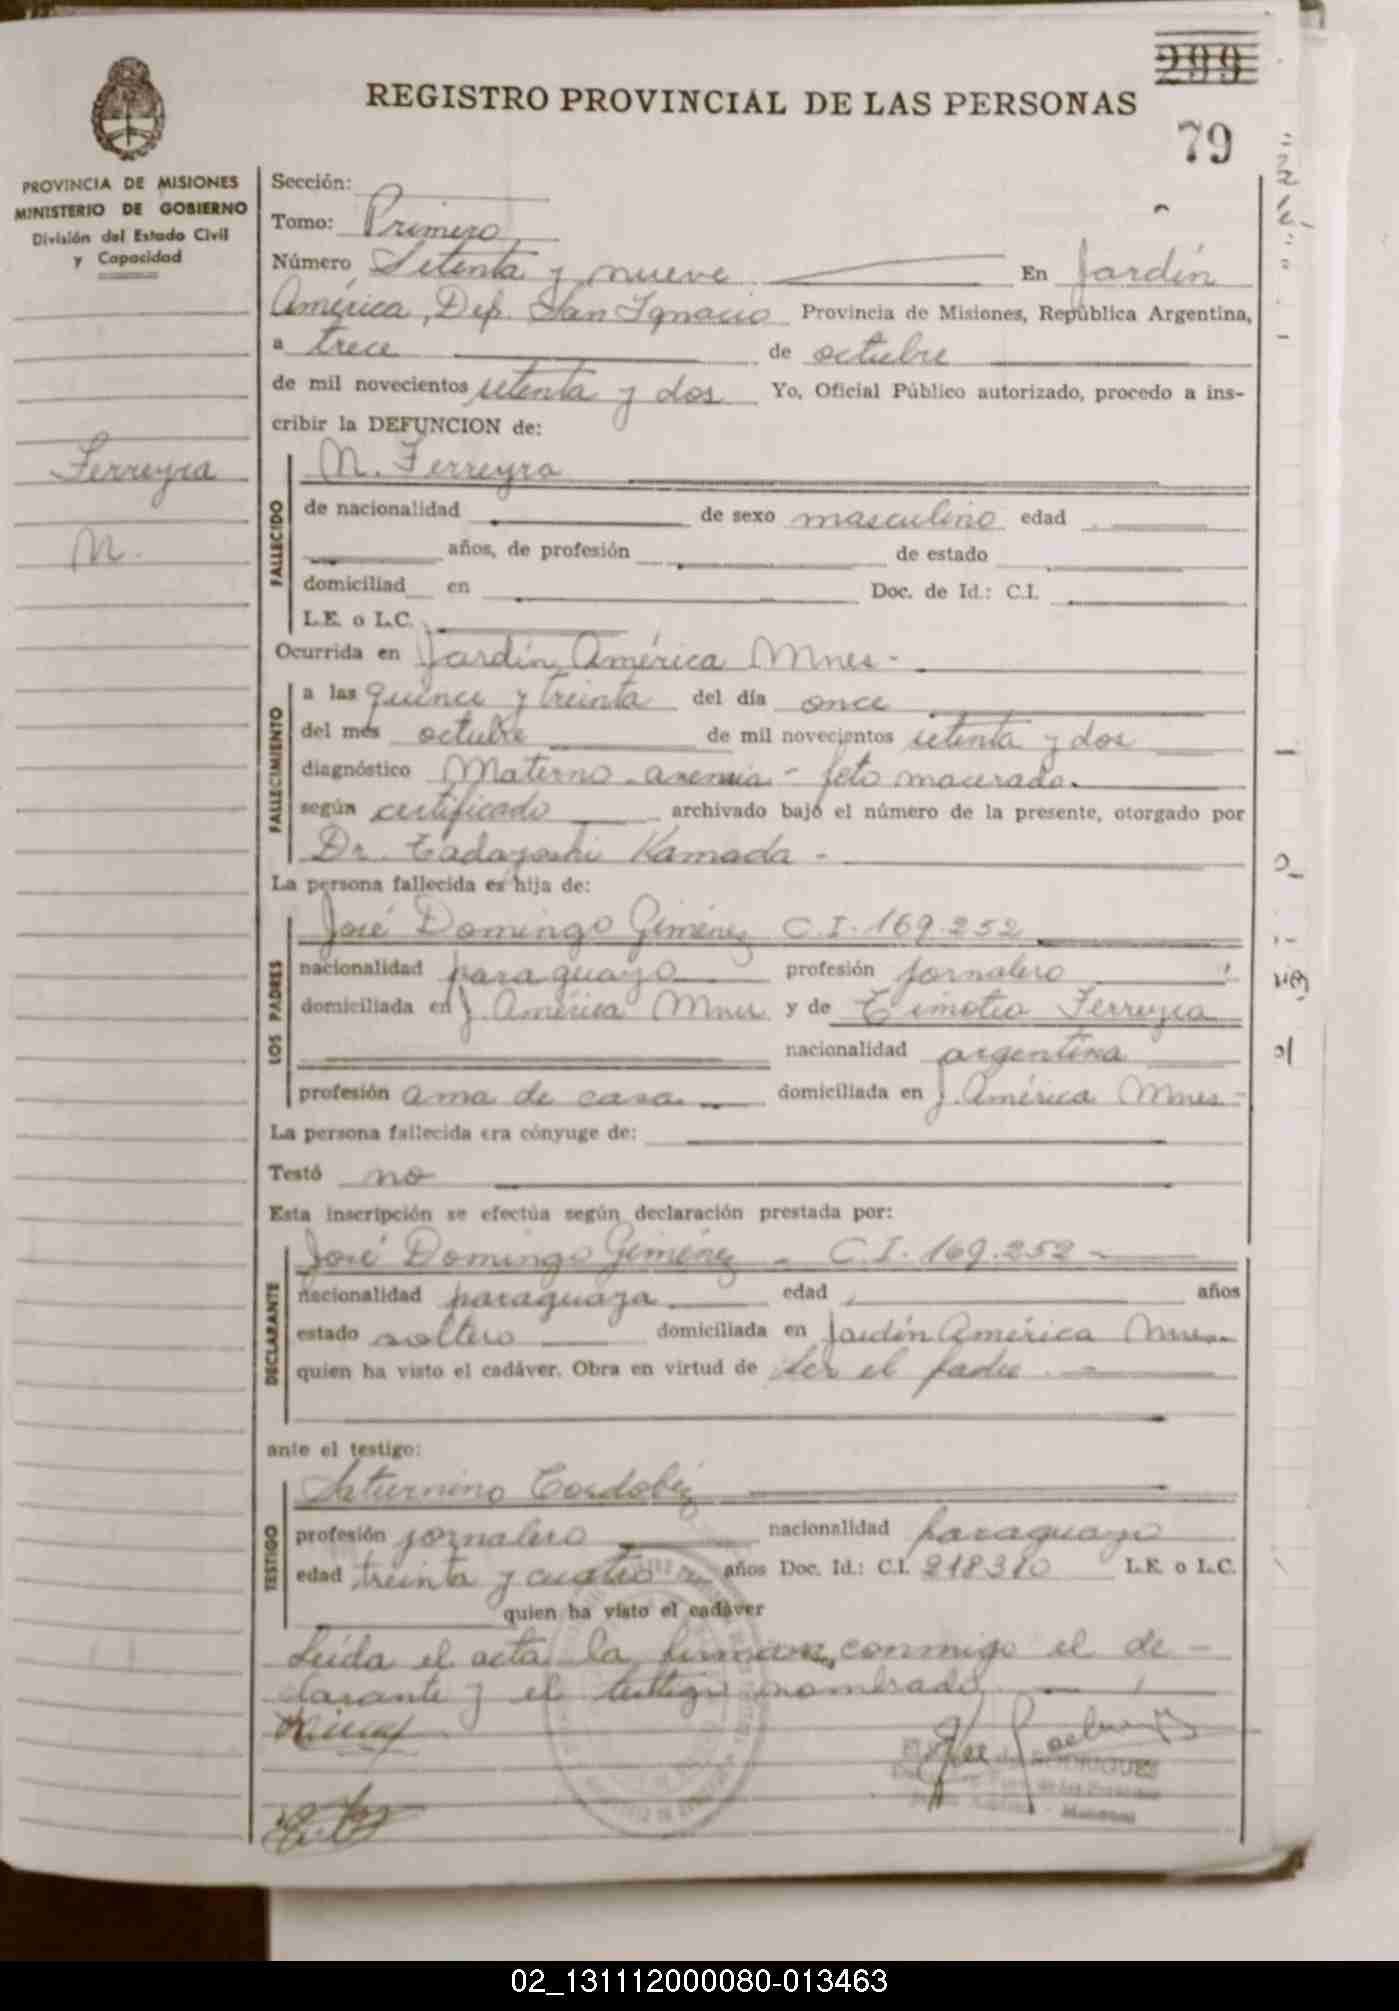 299
REGISTRO PROVINCIAL DE LAS PERSONAS
79
PROVINCIA DE MISIONES
MINISTERIO DE GOBIERNO
División del Estado Civil
y Capacidad
Ferreyra
N.
Sección:
Tomo: Primero
Número Setenta y nueve En Jardín
América, Dep. San Ignacio Provincia de Misiones, República Argentina,
a trece de octubre
de mil novecientos setenta y dos Yo, Oficial Público autorizado, procedo a ins-
cribir la DEFUNCION de:
FALLECIDO
N. Ferreyra
de nacionalidad de sexo masculino edad
años, de profesión de estado
domiciliad en Doc. de Id.: C.I.
L.E. o L.C.
Ocurrida en Jardín América Mnes-
FALLECIMIENTO
a las quince y treinta del día once
del mes octubre de mil novecientos setenta y dos
diagnóstico Materno anemia - feto macerado.
según certificado archivado bajo el número de la presente, otorgado por
Dr. Tadayoshi Kamada -
La persona fallecida es hija de:
LOS PADRES
José Domingo Giménez C.I. 169.252
nacionalidad paraguayo profesión jornalero
domiciliada en J. América Mnes y de Timotea Ferreyra
nacionalidad argentina
profesión ama de casa domiciliada en J. América Mnes-
La persona fallecida era cónyuge de:
Testó no
Esta inscripción se efectúa según declaración prestada por:
DECLARANTE
José Domingo Giménez - C.I. 169.252 -
nacionalidad paraguaya edad años
estado soltero domiciliada en Jardín América Mnes
quien ha visto el cadáver. Obra en virtud de ser el padre
ante el testigo:
TESTIGO
Saturnino
profesión jornalero nacionalidad paraguayo
edad treinta y cuatro años Doc. Id.: C.I. 218310 L.E. o L.C.
quien ha visto el cadáver
Leída el acta la firman conmigo el de-
clarante y el testigo nombrado
RODRIGUES
02_131112000080-013463